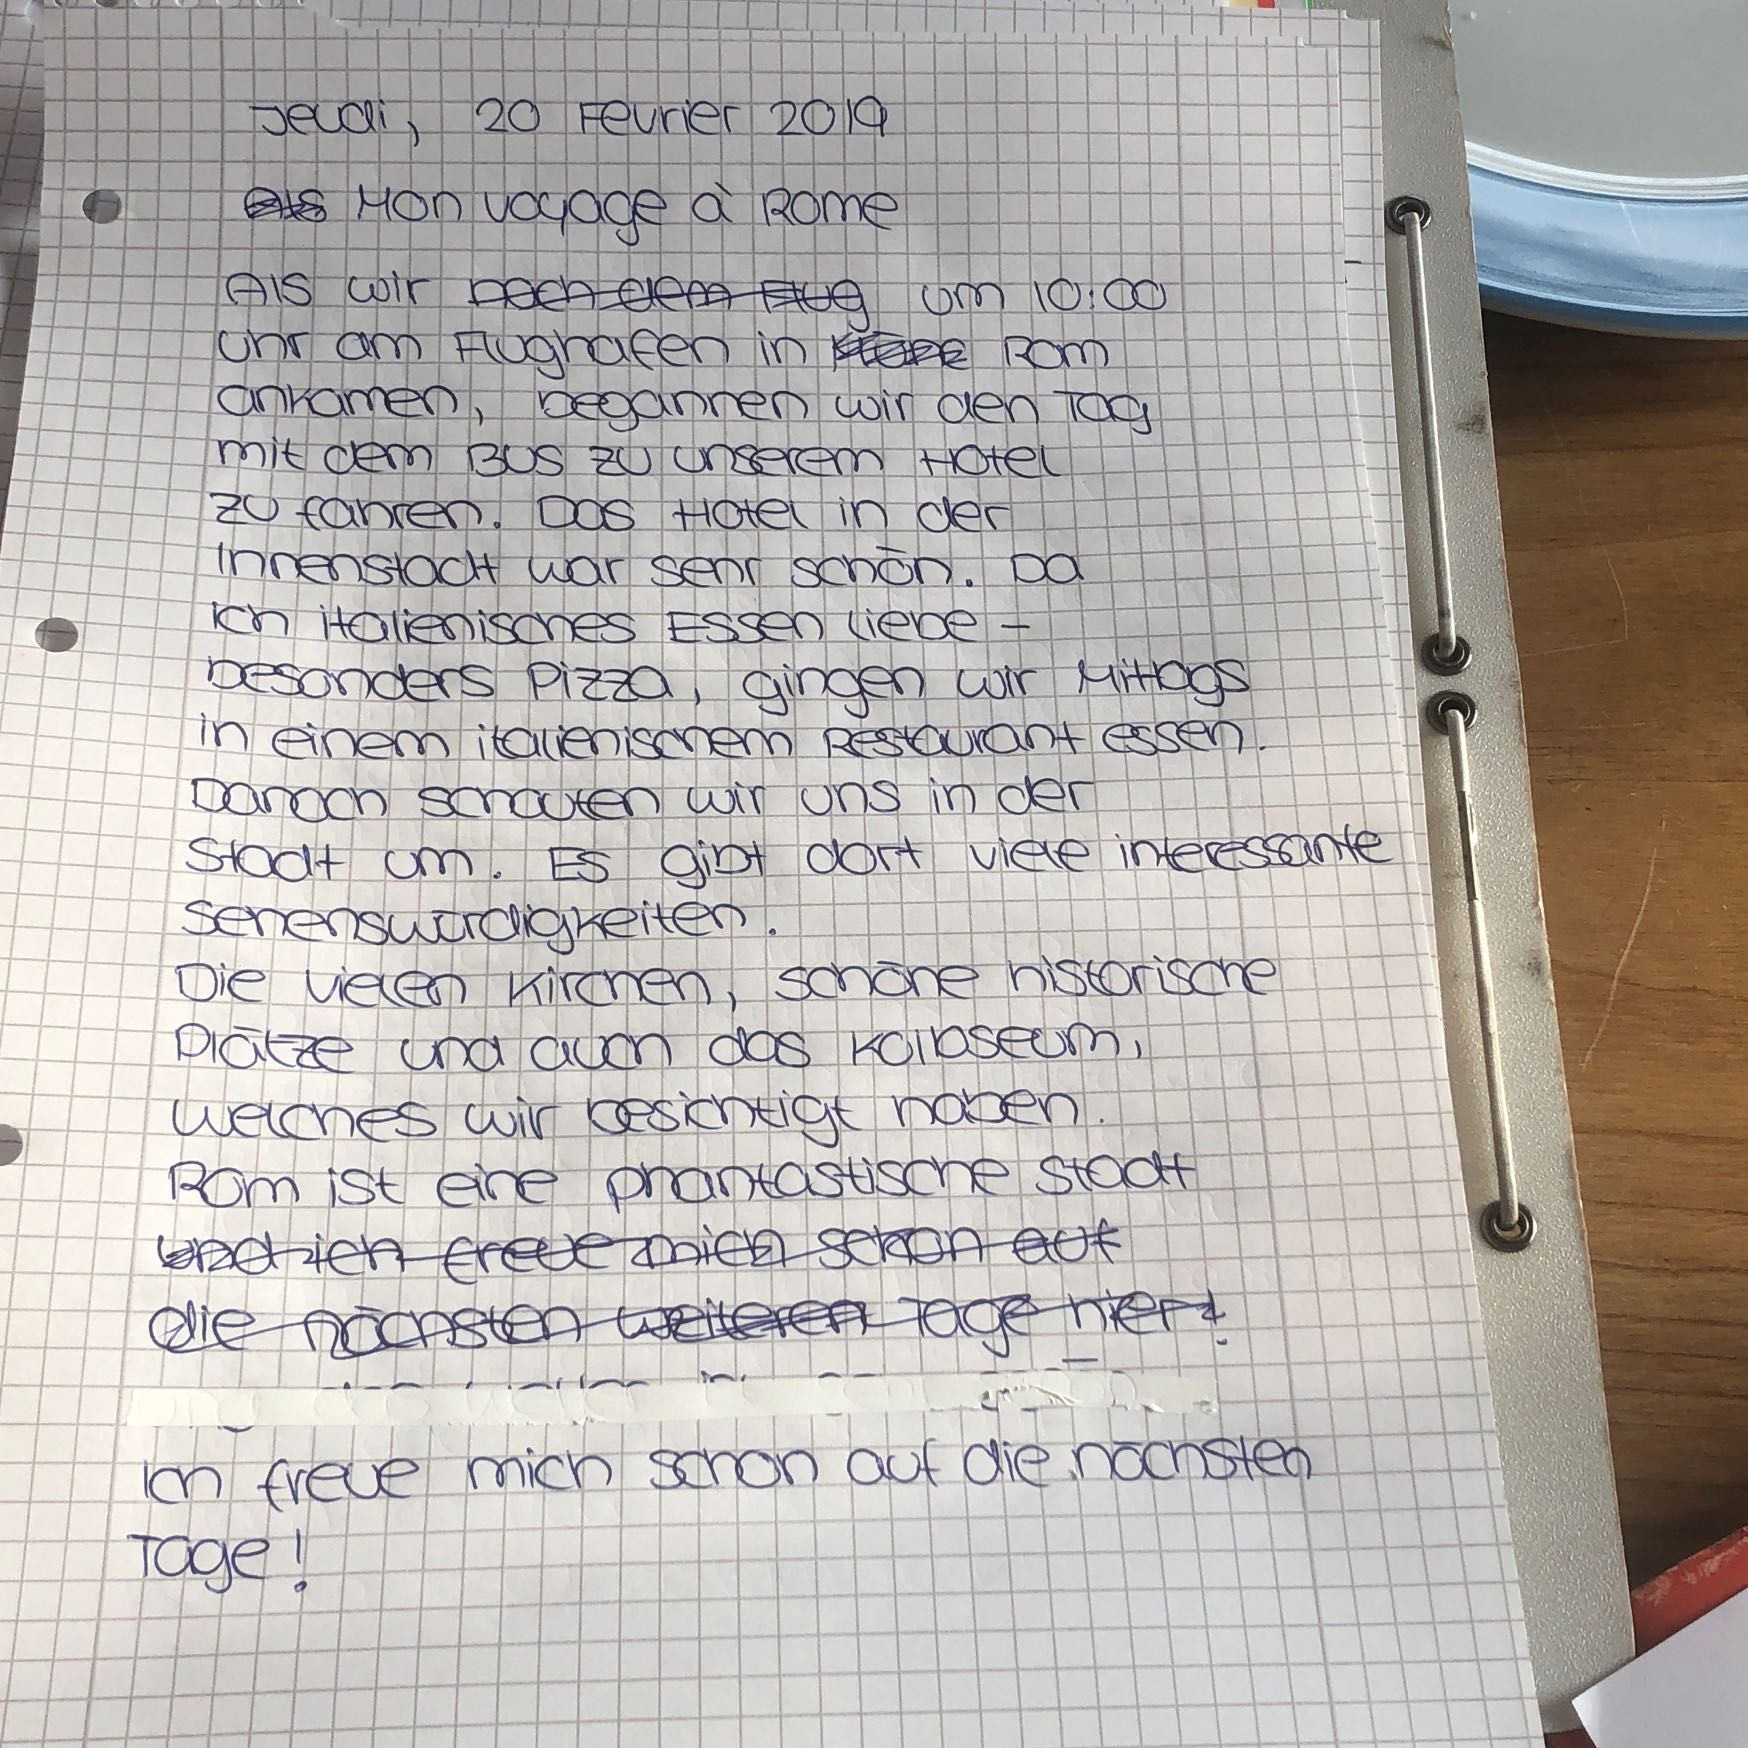 Jeudi, 20 Fevrier 2019
Als Mon voyage à Rome
Als wir nach dem Flug um 10:00
Uhr am Flughafen in Rom
ankamen, begannen wir den Tag
mit dem Bus zu unserem Hotel
zu fahren. Das Hotel in der
Innenstadt war sehr schön. Da
ich italienisches Essen liebe -
besonders Pizza, gingen wir Mittags
in einem italienischem Restaurant essen.
Danach schauten wir uns in der
Stadt um. Es gibt dort viele interessante
Sehenswürdigkeiten.
Die vielen Kirchen, schöne historische
Plätze und auch das Koloseum,
welches wir besichtigt haben.
Rom ist eine phantastische Stadt
und ich freue mich schon auf
die nächsten weiteren Tage hier!
Ich freue mich schon auf die nächsten
Tage!